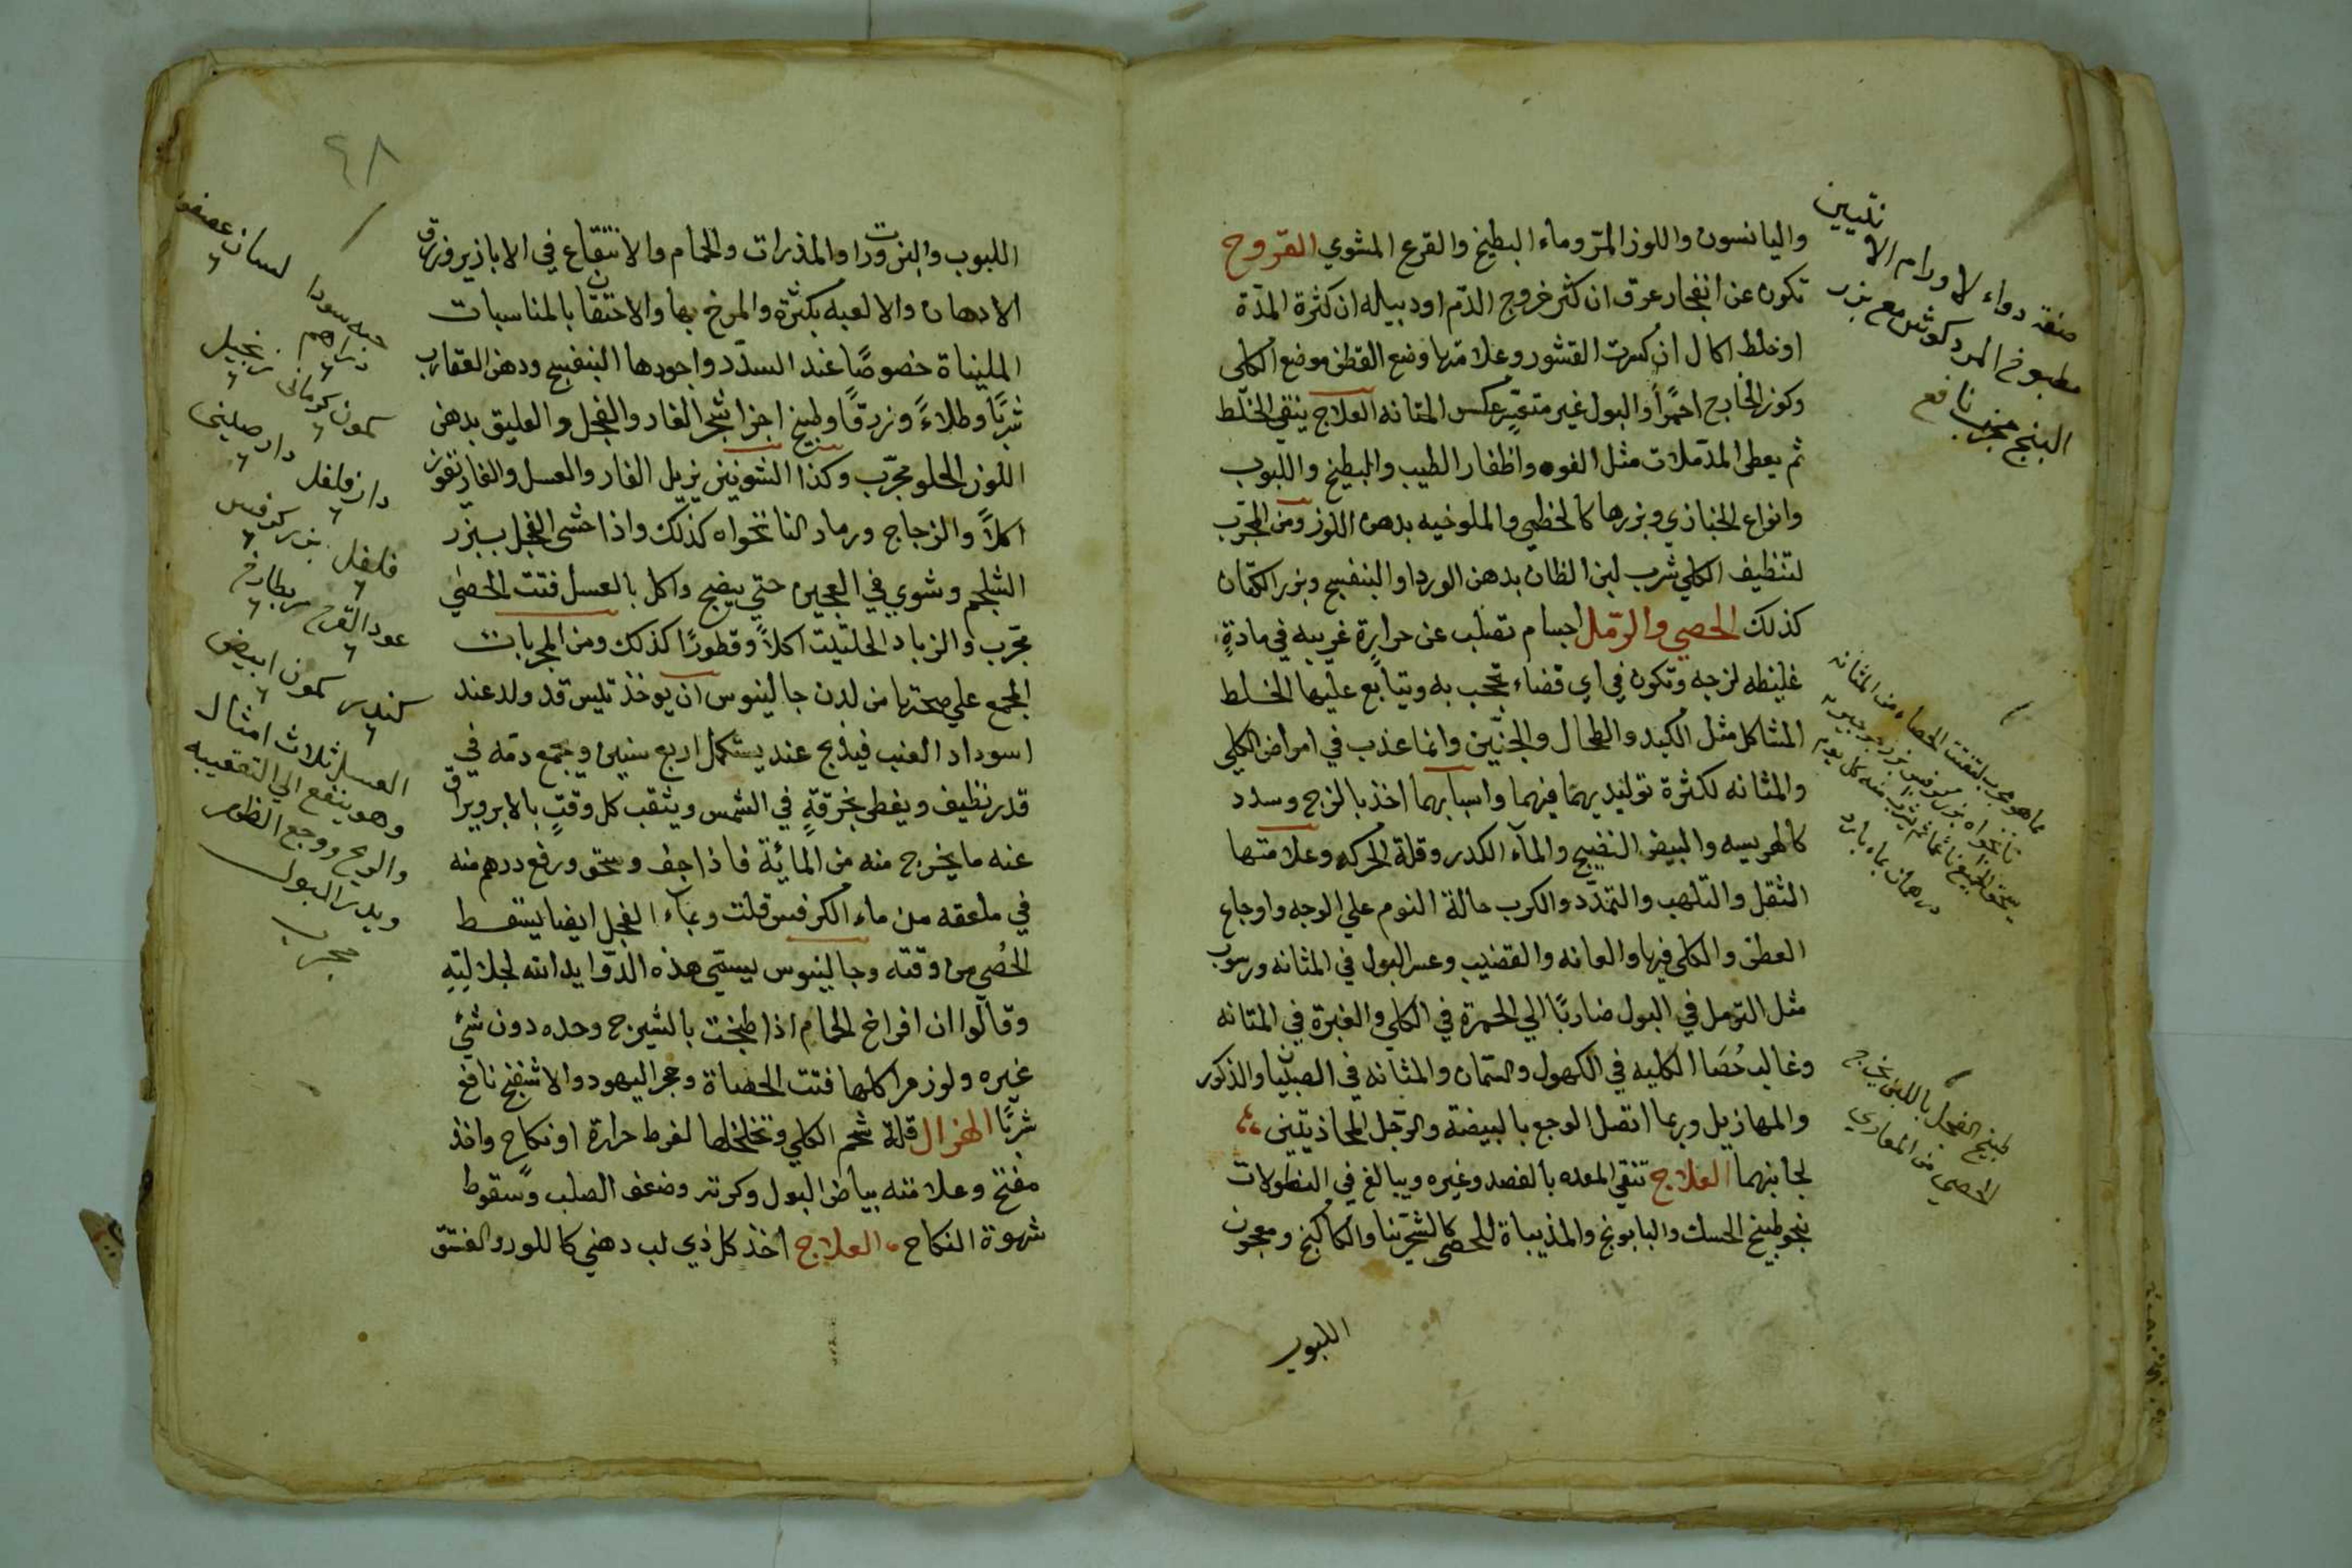 واليانسون واللوز المرّ وماء البطيخ والقرع المشوي القروح
تكون عن انفجار عرق ان كثر خروج الدّم او دبيله ان كثرة المدّة
او خلط اكال ان كسرت القشور وعلامتها وضع القطن موضع الكلى
وكون الخارج احمرًا والبول غير متغيّر عكس المثانه العلاج ينقي الخلط
ثم يعطى المدّملات مثل الفوه واظفار الطيب والبطيخ واللبوب
وانواع الخبازي وبزرها كالخطمي والملوخيه بدهن اللوز ومن المجرّب
لتنظيف الكلي شرب لبن الظان بدهن الورد او البنفسج وبزر الكتّان
كذلك الحصي والرّمل اجسام تصلب عن حرارةٍ غريبه في مادةٍ
غليظه لزجه وتكون في اي فضاء تحجب به ويتابع عليها الخلط
المشاكل مثل الكبد والطحال والجنّين وانما عذب في امراض الكلي
والمثانه لكثرة توليديهما فيهما واسبابهما اخذ بالزج وسدد
كالهريسه والبيض النضيج والمآء الكدر وقلة الحركه وعلامتها
الثقل والتلهب والتمدّد والكرب حالة النوم علي الوجه واوجاع
العطن والكلى فيها والعانه والقضيب وعسر البول في المثانه ورسوب
مثل الرّمل في البول ضاربًا الي الحمرة في الكلي والغبرة في المثانه
وغالب حُصَا الكليه في الكهول والسّمان والمثانه في الصبيان والذكور
والمهازيل وربما اتصل الوجع بالبيضة والرّجل المحاذيتين
لجانبهما العلاج تنقي المعده بالفصد وغيره ويبالغ في النطولات
بنحو طبيخ الحسك والبابونج والمذيباة للحصى كالشجرينا والكاكنج ومعجون
اللبوب
صفة دواء لاورام الانثيين
مطبوخ المردكوش مع بزر
البنج مجرب نافع
مما هو مجرب لتفتت الحصاه من المثانه
درهمان بماء بارد
طبيخ الفجل باللبن يخرج
الحصي من المعاري
٤٨
اللبوب والبزورات او المذرات والحمام والانتقاع في الابازير وزرق
الادهان والالعبه بكثرة والمرخ بها والاحتقان بالمناسبات
المليناة خصوصًا عند السدّد واجودها البنفسج ودهن العقارب
شربًا وطلاءً وزرقًا وطبيخ اجزا شجر الغار والفجل والعليق بدهن
اللوز الحلو مجرّب وكذا الشونيز يزيل الفار والعسل والغاريقون
اكلاً والزجاج ورماد النانخواه كذلك واذا حشى الفجل ببزر
الشلجم وشوي في العجين حتي ينضج واكل بالعسل فتت الحصي
مجّرب والزباد الحلتيت اكلاً وقطورًا كذلك ومن المجربات
المجمع علي صحتها من لدن جالينوس ان يوخذ تيس قد ولد عند
اسوداد العنب فيذبح عند يستكمل اربع سنين ويجمع دمّه في
قدر نظيف ويغطى بخرقةٍ في الشمس ويثقب كل وقتٍ بالابر ويراق
عنه ما يخرج منه من المائيّة فاذا جف وسحق ورفع درهم منه
في ملعقه من ماء الكرفس قلت وبمآء الفجل ايضا يسقط
الحُصي من وقته وجالينوس يسمّي هذه الدّوا يد الله لجلالتِه
وقالّوا ان افراخ الحمام اذا طبخت بالشيرج وحده دون شيّ
غيره ولوزم اكلها فتت الحصاة وحجر اليهود والاسفنج نافع
شربًا الهزال قلة شحم الكلي وتخلخلها لفرط حرارة او نكاح واخذ
مفتح وعلامته بياض البول وكثرته وضعف الصلب وسقوط
شهوة النكاح العلاج اخذ كل ذي لب دهني كاللوز والفستق
حبه سودا لسان عصفور
دراهم
كمون كرماني زنجبيل
دار فلفل دار صيني
فلفل بزر كرفس
عود القرح
كندر كمون ابيض
العسل ثلاث امثال
وهو ينفع الي التقعيبه
والريح ووجع الظهر
ويدر البول
مجرب